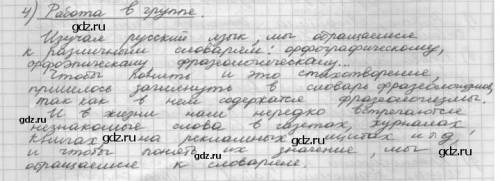 4) Работа в группе.
Изучая русский язык, мы обращаемся
к различным словарям: орфографическому,
орфоэпическому фразеологическому...
Чтобы понять и это стихотворение,
пришлось заглянуть в словарь фразеологизмов,
так как в нем содержатся фразеологизмы.
И в жизни нам нередко встречаются
незнакомые слова в газетах, журналах
книгах на рекламных щитах и т.д,
и чтобы понять их значение, мы
обращаемся к словарям.